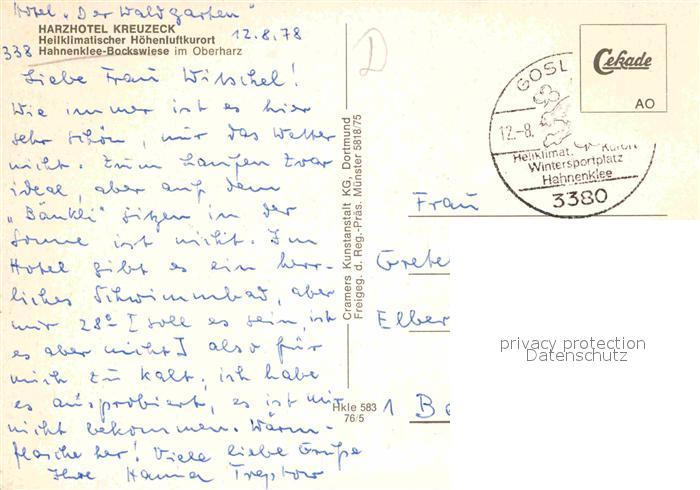 Hotel "Der Waldgarten"
HARZHOTEL KREUZECK
Heilklimatischer Höhenluftkurort
12.8.78
338
Hahnenklee-Bockswiese im Oberharz
Liebe Frau Witschel!
Wie immer ist es hier
sehr schön, nur das Wetter
nicht. Zum Laufen zwar
ideal, aber auf dem
"Bänkli" sitzen in der
Sonne ist nicht. Im
Hotel gibt es ein herr-
liches Schwimmbad, aber
nur 28° [soll es sein, ist
es aber nicht] also für
mich zu kalt, ich habe
es ausprobiert, es ist mir
nicht bekommen. Wärm-
flasche her! Viele liebe Grüße
Ihre Hanna Treptow
Cramers Kunstanstalt KG, Dortmund
Freigeg. d. Reg.-Präs. Münster 5818/75
Hkle 583
76/5
D
Cekade
AO
GOSL
12.-8.
Heilklimat. Kurort
Wintersportplatz
Hahnenklee
3380
Frau
Grete
Elber
1 Be
privacy protection
Datenschutz